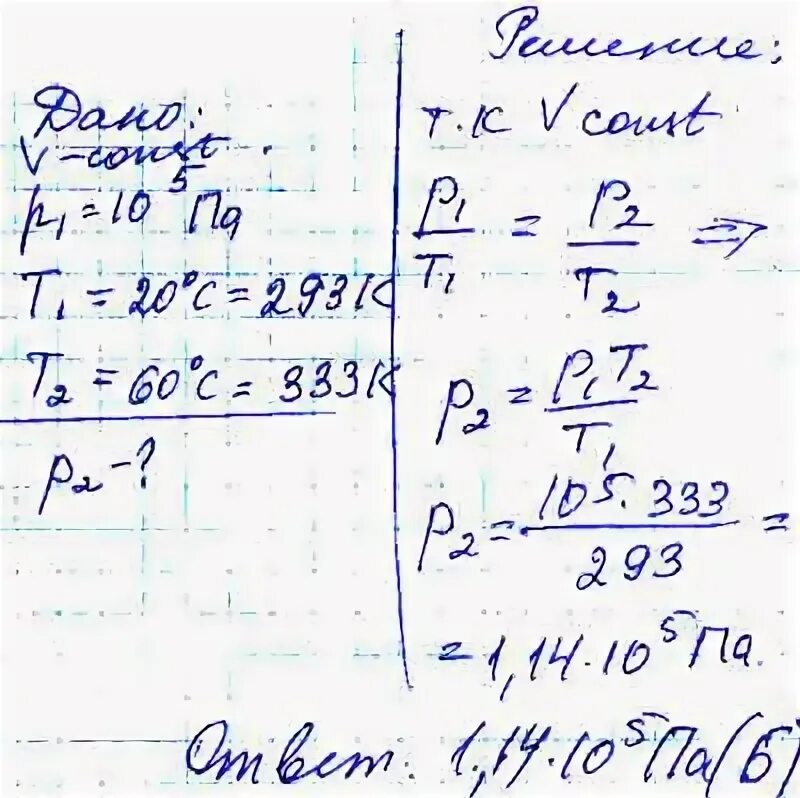 Дано:
V - const.
p₁ = 10⁵ Па
T₁ = 20°C = 293K
T₂ = 60°C = 333K
p₂ - ?
Решение:
т.к V const
p₁/T₁ = p₂/T₂ =>
p₂ = p₁T₂/T₁
p₂ = 10⁵ · 333/293 =
= 1,14 · 10⁵ Па.
Ответ: 1,14 · 10⁵ Па (б)